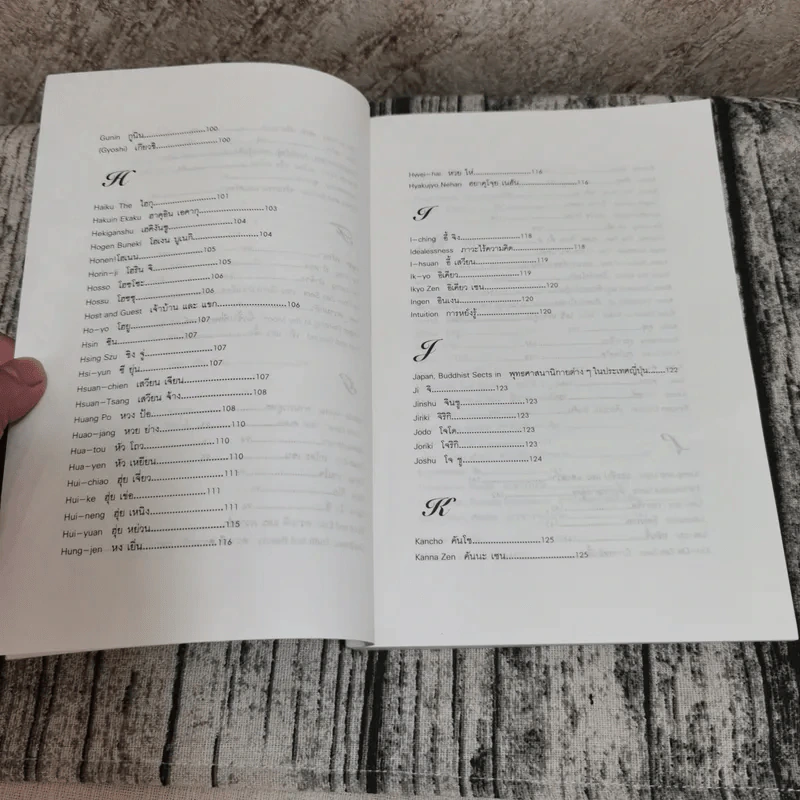 Gunin กูนิน............................100
(Gyoshi) เกียวชิ............................100
H
Haiku The ไฮกุ............................101
Hakuin Ekaku ฮาคุอิน เอคากุ............................103
Hekiganshu เฮคิงันชู............................104
Hogen Buneki โฮเงน บูเนกิ............................104
Honen โฮเนน............................105
Horin-ji โฮริน จิ............................105
Hosso โฮซโซะ............................106
Hossu โฮซซุ............................106
Host and Guest เจ้าบ้าน และ แขก............................106
Ho-yo โฮยู............................107
Hsin ซิน............................107
Hsing Szu ซิง จู่............................107
Hsi-yun ซี ยุ่น............................107
Hsuan-chien เสวียน เจียน............................107
Hsuan-Tsang เสวียน จ้าง............................108
Huang Po หวง ป้อ............................108
Huao-jang หวย ย่าง............................110
Hua-tou หัว โถว............................110
Hua-yen หัว เหยียน............................110
Hui-chiao ฮุ่ย เจี่ยว............................111
Hui-ke ฮุ่ย เข่อ............................111
Hui-neng ฮุ่ย เหนิง............................111
Hui-yuan ฮุ่ย หย่วน............................115
Hung-jen หง เยิ่น............................116
Hwei-hai หวย ไห่............................116
Hyakujyo Nehan ฮยาคุโจฺย เนฮัน............................116
I
I-ching อี้ จิง............................118
Idealessness ภาวะไร้ความคิด............................118
I-hsuan อี้ เสวียน............................119
Ik-yo อิเคียว............................119
Ikyo Zen อิเคียว เซน............................120
Ingen อินเงน............................120
Intuition การหยั่งรู้............................120
J
Japan, Buddhist Sects in พุทธศาสนานิกายต่าง ๆ ในประเทศญี่ปุ่น.......122
Ji จิ............................123
Jinshu จินชู............................123
Jiriki จิริกิ............................123
Jodo โจโด............................123
Joriki โจริกิ............................123
Joshu โจ ชู............................124
K
Kancho คันโช............................125
Kanna Zen คันนะ เซน............................125